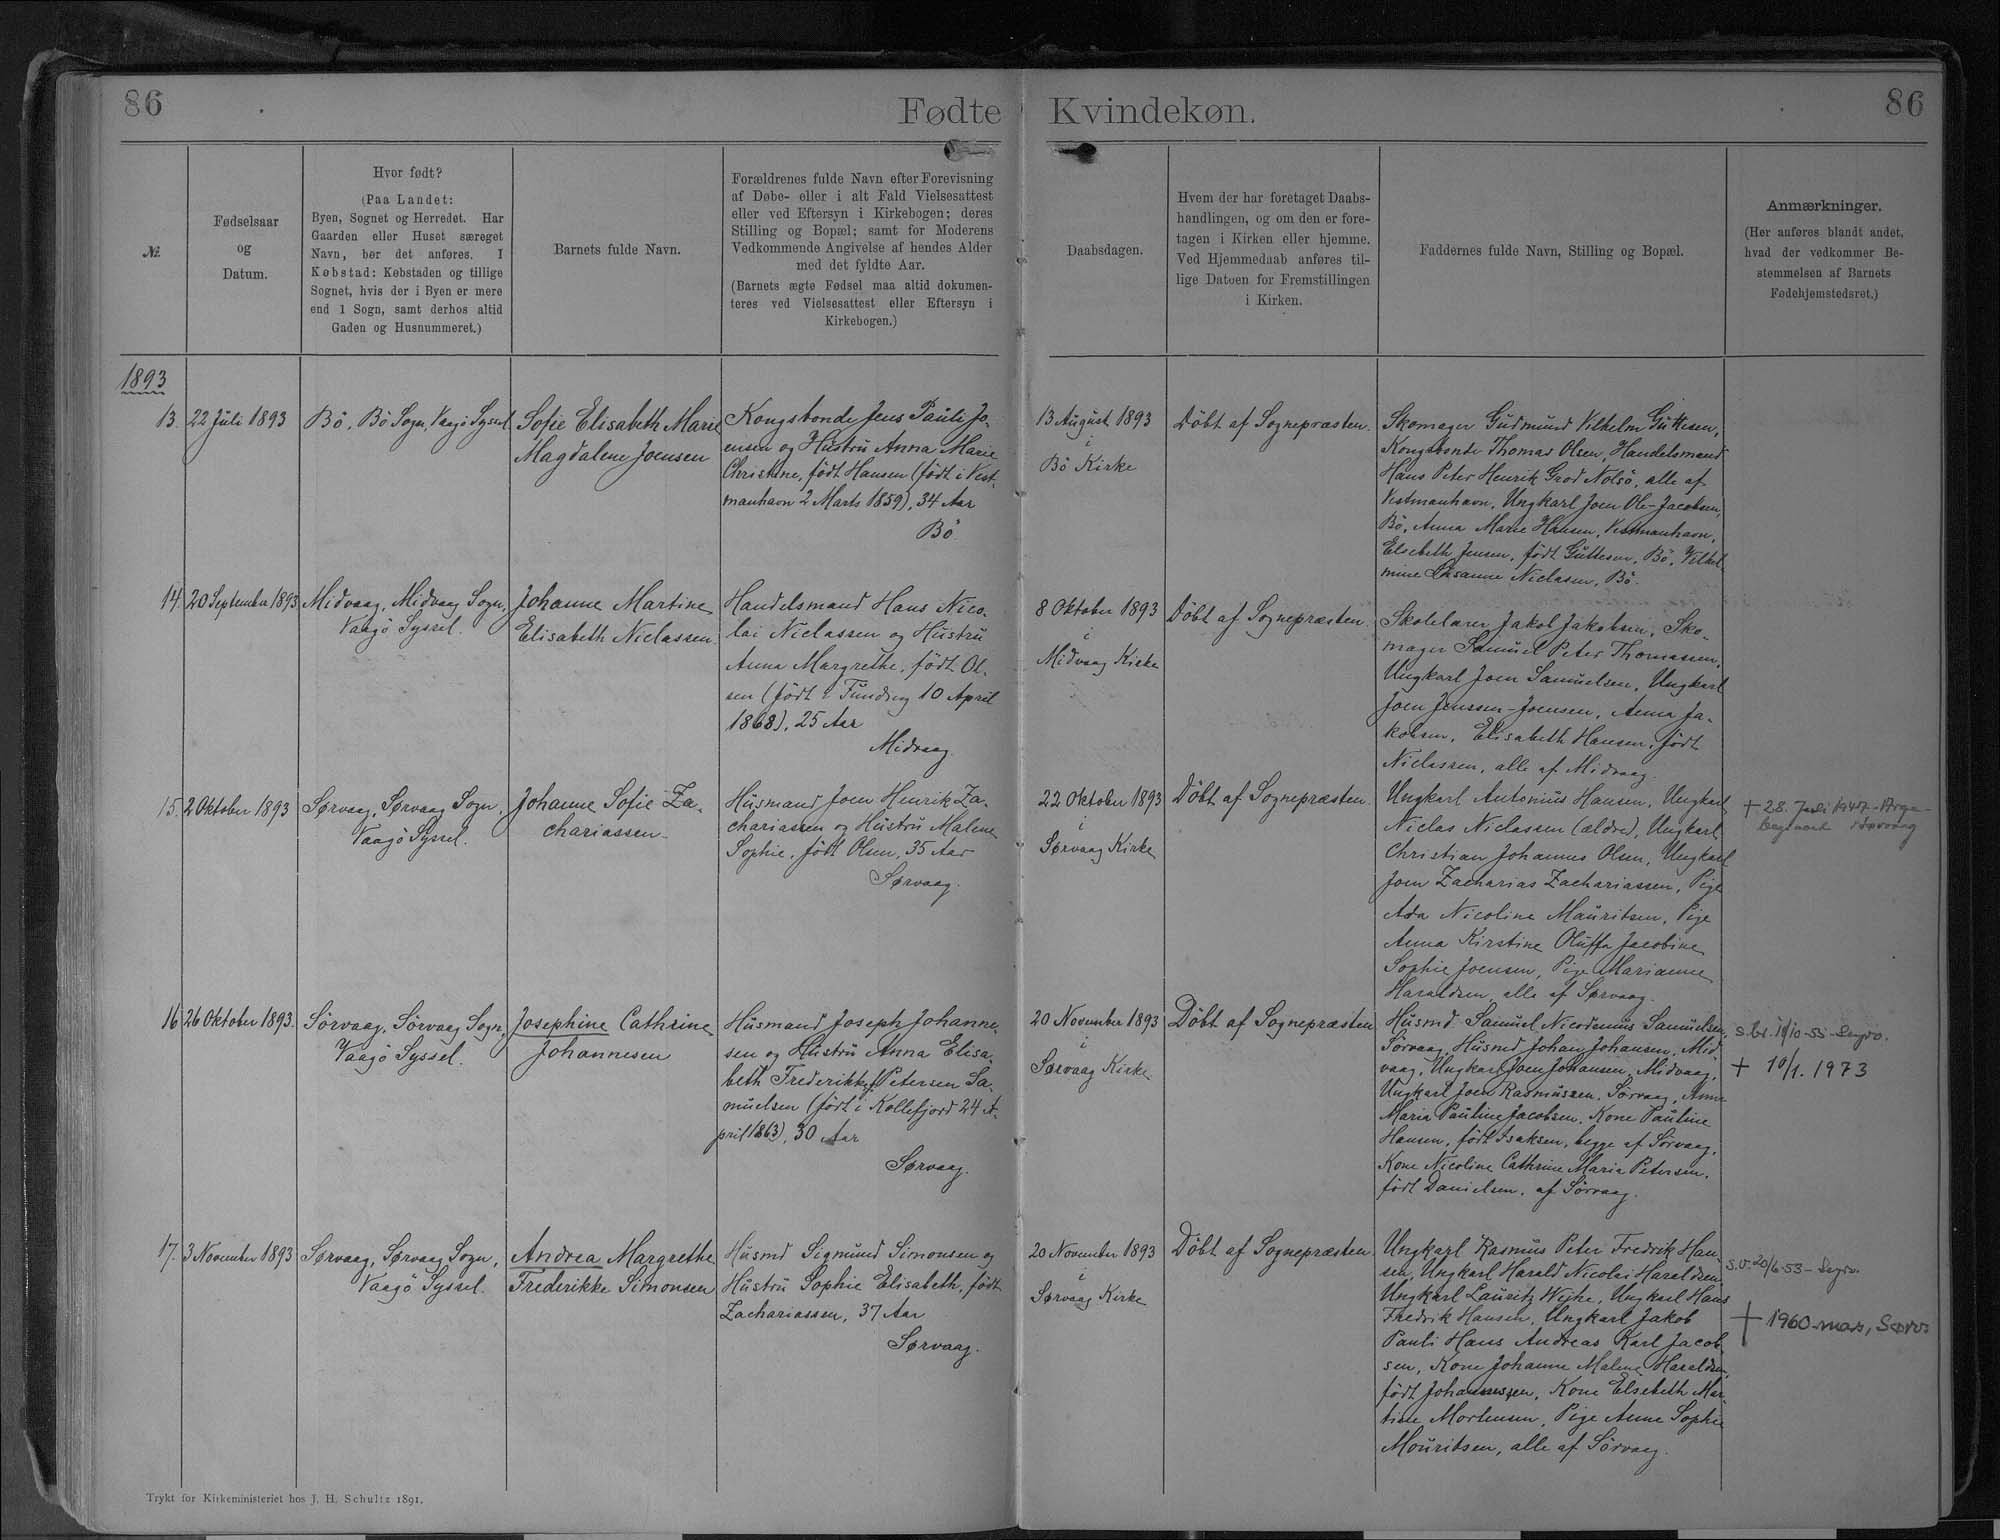 86
Fødte
Kvindekøn.
86
№
Fødselsaar
og
Datum.
Hvor født?
(Paa Landet:
Byen, Sognet og Herredet. Har
Gaarden eller Huset særeget
Navn, bør det anføres. I
Købstad: Købstaden og tillige
Sognet, hvis der i Byen er mere
end 1 Sogn, samt derhos altid
Gaden og Husnummeret.)
Barnets fulde Navn.
Forældrenes fulde Navn efter Forevisning
af Døbe- eller i alt Fald Vielsesattest
eller ved Eftersyn i Kirkebogen; deres
Stilling og Bopæl; samt for Moderens
Vedkommende Angivelse af hendes Alder
med det fyldte Aar.
(Barnets ægte Fødsel maa altid dokumen-
teres ved Vielsesattest eller Eftersyn i
Kirkebogen.)
Daabsdagen.
Hvem der har foretaget Daabs-
handlingen, og om den er fore-
tagen i Kirken eller hjemme.
Ved Hjemmedaab anføres til-
lige Datoen for Fremstillingen
i Kirken.
Faddernes fulde Navn, Stilling og Bopæl.
Anmærkninger.
(Her anføres blandt andet,
hvad der vedkommer Be-
stemmelsen af Barnets
Fødehjemstedsret.)
1893
13.
22 Juli 1893
Bö, Bö Sogn, Vaagö Syssel
Sofie Elisabeth Marie
Magdalene Joensen
Kongsbonde Jens Pauli Jo-
ensen og Hustru Anna Marie
Christine, født Hansen (født i Vest-
manhavn 2 Marts 1859), 34 Aar
Bö.
13 August 1893
i
Bö Kirke
Döbt af Sognepræsten.
Skomager Gudmund Vilhelm Guttesen,
Kongsbonde Thomas Olsen, Handelsmand
Hans Peter Henrik Grod Nolsö, alle af
Vestmanhavn, Ungkarl Joen Ole-Jacobsen,
Bö, Anna Marie Hansen, Vestmanhavn,
Elsebeth Jensen, født Guttesen, Bö, Vilhel
mine Susanne Niclasen, Bö.
14.
20 September 1893
Midvaag, Midvaag Sogn,
Vaagö Syssel.
Johanne Martine
Elisabeth Niclassen
Handelsmand Hans Nico-
lai Niclassen og Hustru
Anna Margrethe, født Ol-
sen (født i Funding 10 April
1868), 25 Aar
Midvaag.
8 Oktober 1893
i
Midvaag Kirke
Döbt af Sognepræsten.
Skolelærer Jakob Jakobsen, Sko-
mager Samuel Peter Thomassen,
Ungkarl Joen Samuelsen, Ungkarl
Joen Jenssen-Joensen, Anna Ja-
kobsen, Elisabeth Hansen, født
Niclassen, alle af Midvaag.
15.
2 Oktober 1893
Sørvaag, Sørvaag Sogn,
Vaagö Syssel.
Johanne Sofie Za-
chariassen
Husmand Joen Henrik Za-
chariassen og Hustru Malene
Sophie, født Olsen, 35 Aar
Sørvaag.
22 Oktober 1893
i
Sørvaag Kirke
Döbt af Sognepræsten
Ungkarl Antonius Hansen, Ungkarl
Niclas Niclassen (ældre), Ungkarl
Christian Johannes Olsen, Ungkarl
Joen Zacharias Zachariassen, Pige
Ada Nicoline Mauritsen, Pige
Anna Kirstine Oluffa Jacobine
Sophie Joensen, Pige Marianne
Haraldsen, alle af Sørvaag.
† 28. Juli 1947
Sørvaag
16
26 Oktober 1893.
Sörvaag, Sörvaag Sogn,
Vaagö Syssel.
Josephine Cathrine
Johannesen
Husmand Joseph Johanne-
sen og Hustru Anna Elisa-
beth Frederikke Petersen Sa-
muelsen (født i Kollefjord 24 A-
pril 1863), 30 Aar
Sørvaag.
20 November 1893
i
Sørvaag Kirke
Döbt af Sognepræsten
Husmd Samuel Nicodemus Samuelsen,
Sörvaag, Husmd Johan Johansen, Mid
vaag, Ungkarl Joen Johansen, Midvaag,
Ungkarl Joen Rasmussen, Sörvaag, Anna
Maria Pauline Jacobsen, Kone Pauline
Hansen, født Isaksen, begge af Sörvaag,
Kone Nicoline Cathrine Maria Petersen,
født Danielsen, af Sörvaag.
† 10/1. 1973
17.
3 November 1893
Sørvaag, Sørvaag Sogn,
Vaagö Syssel.
Andrea Margrethe
Frederikke Simonsen
Husmd Sigmund Simonsen og
Hustru Sophie Elisabeth, født
Zachariassen, 37 Aar
Sørvaag.
20 November 1893
i
Sørvaag Kirke
Döbt af Sognepræsten
Ungkarl Rasmus Peter Fredrik Han-
sen, Ungkarl Harald Nicolai Haraldsen,
Ungkarl Lauritz Wejhe, Ungkarl Hans
Fredrik Hansen, Ungkarl Jakob
Pauli Hans Andreas Karl Jacob
sen, Kone Johanne Malene Haraldsen,
født Johannessen, Kone Elsebeth Mar-
tine Mortensen, Pige Anne Sophie
Mouritsen, alle af Sörvaag.
† 1960 mars,
Trykt for Kirkeministeriet hos J. H. Schultz 1891.